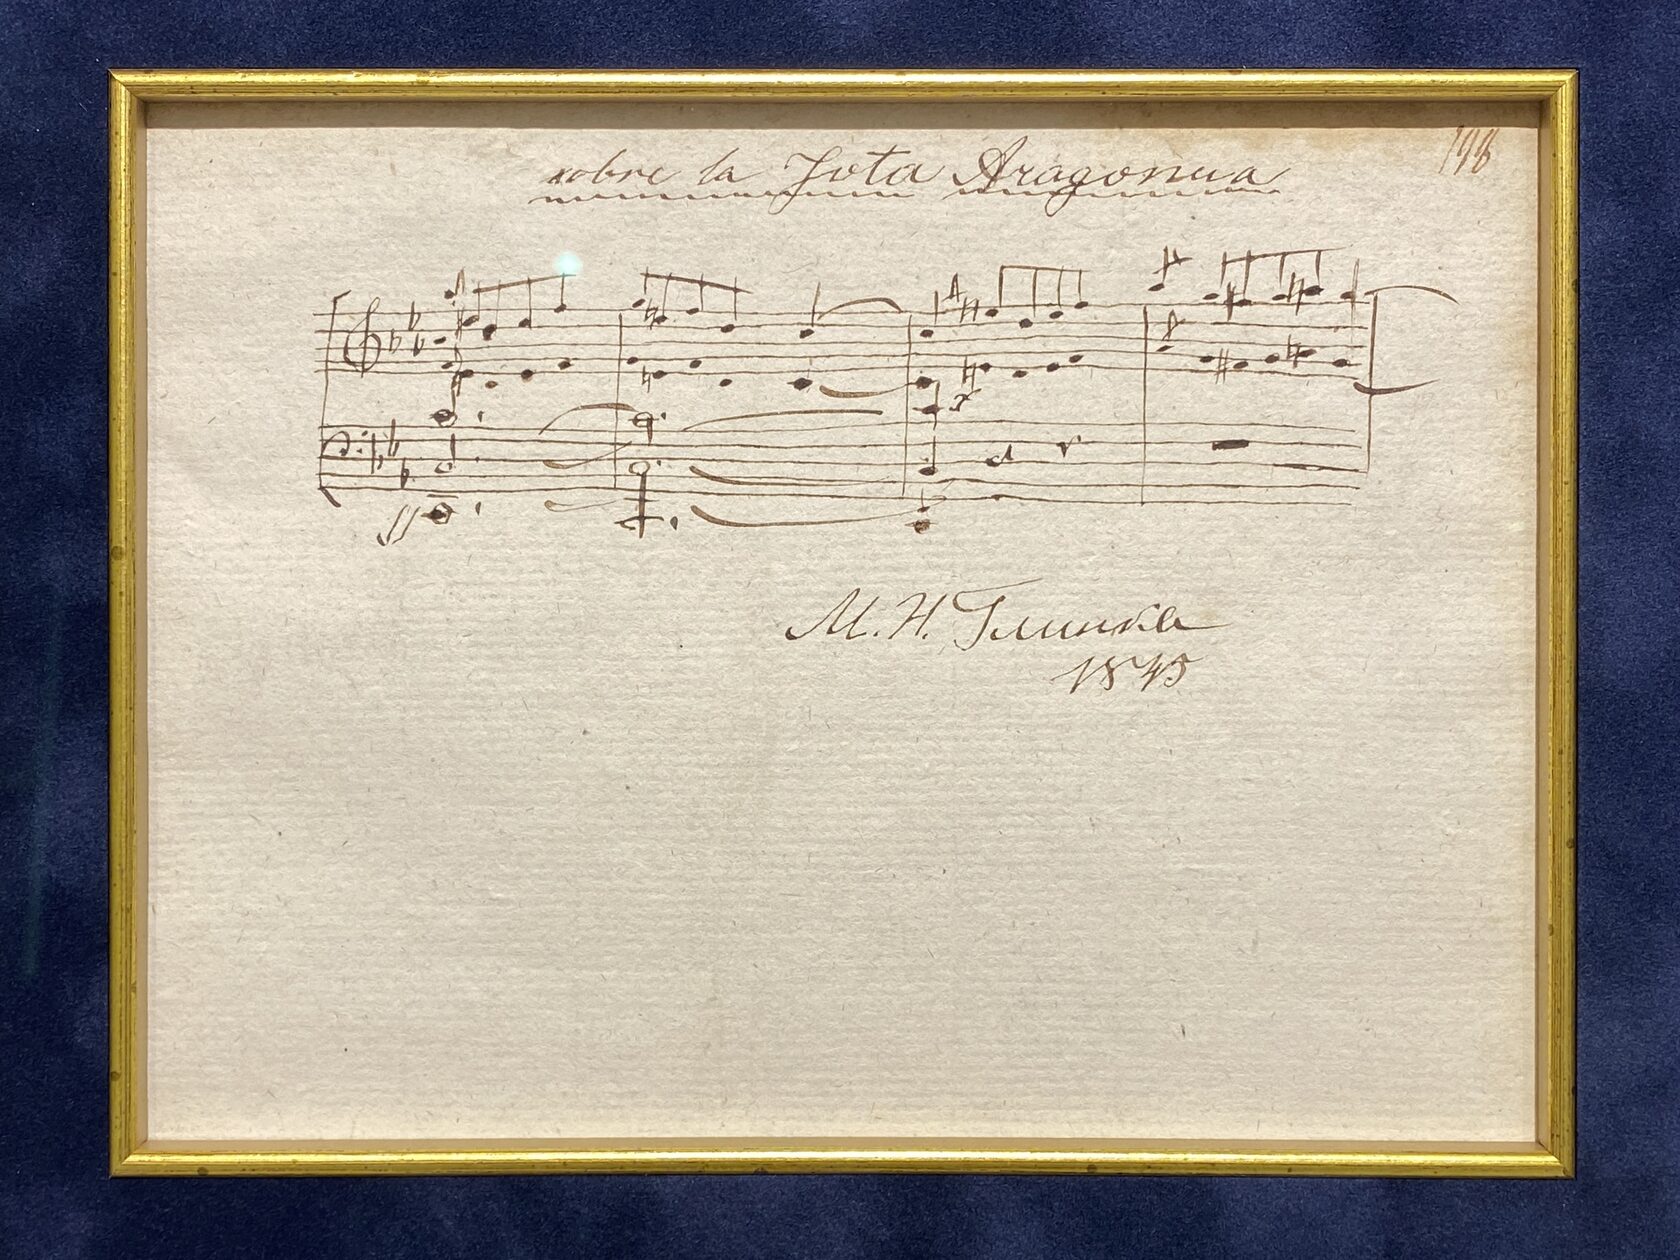 198
sobre la Jota Aragonesa
ff
М. И. Глинка
1845